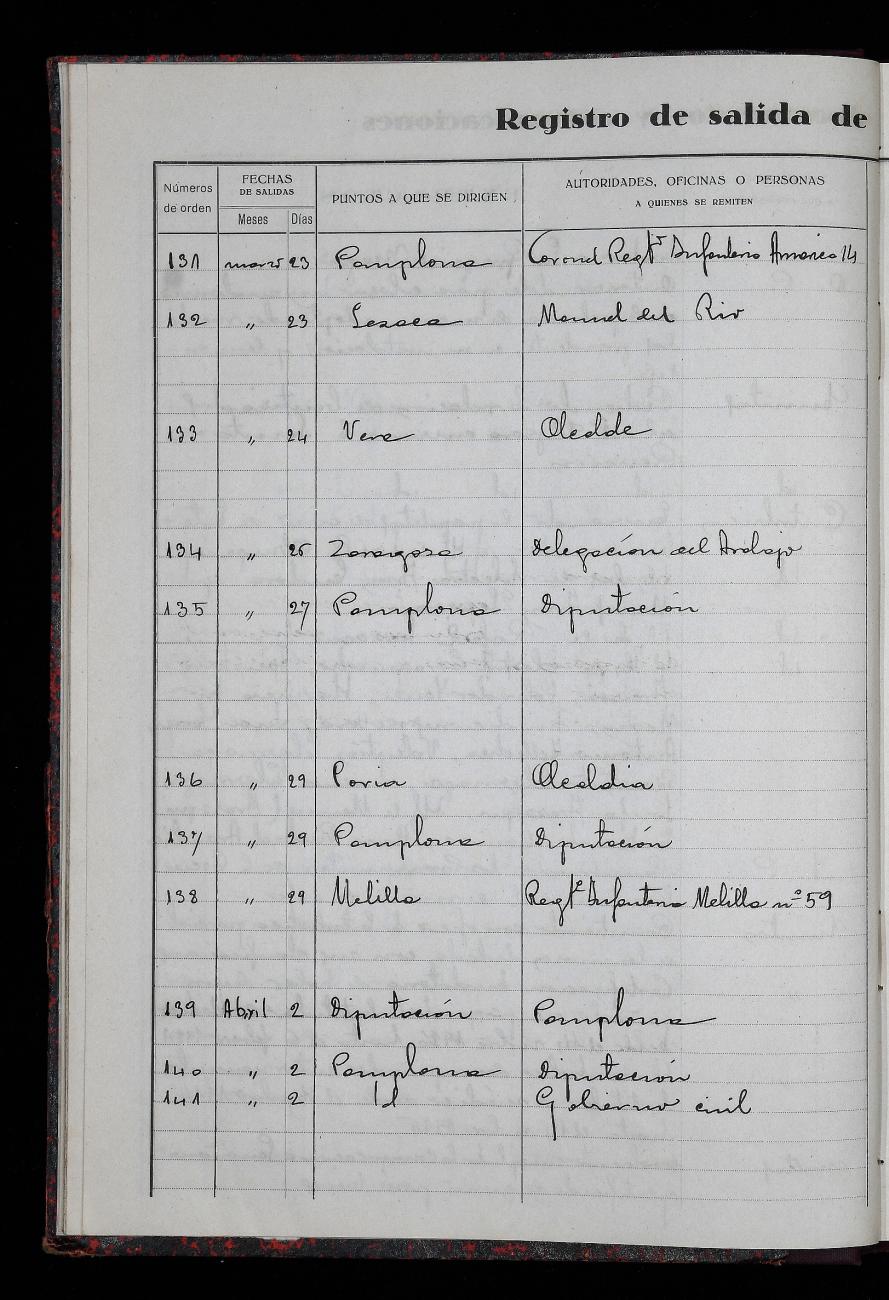 Registro de salida de
Números de orden
FECHAS DE SALIDAS
Meses Días
PUNTOS A QUE SE DIRIGEN
AUTORIDADES, OFICINAS O PERSONAS
A QUIENES SE REMITEN
131 marzo 23 Pamplona Coronel Regtº Infanteria America 14
132 " 23 Lesaca Manuel del Rio
133 " 24 Vera Alcalde
134 " 26 Zaragoza Delegación del Trabajo
135 " 27 Pamplona Diputación
136 " 29 Alcaldia
137 " 29 Pamplona Diputación
138 " 29 Melilla Regtº Infanteria Melilla nº 59
139 Abril 2 Diputación Pamplona
140 " 2 Pamplona Diputación
141 " 2 Id Gobierno civil